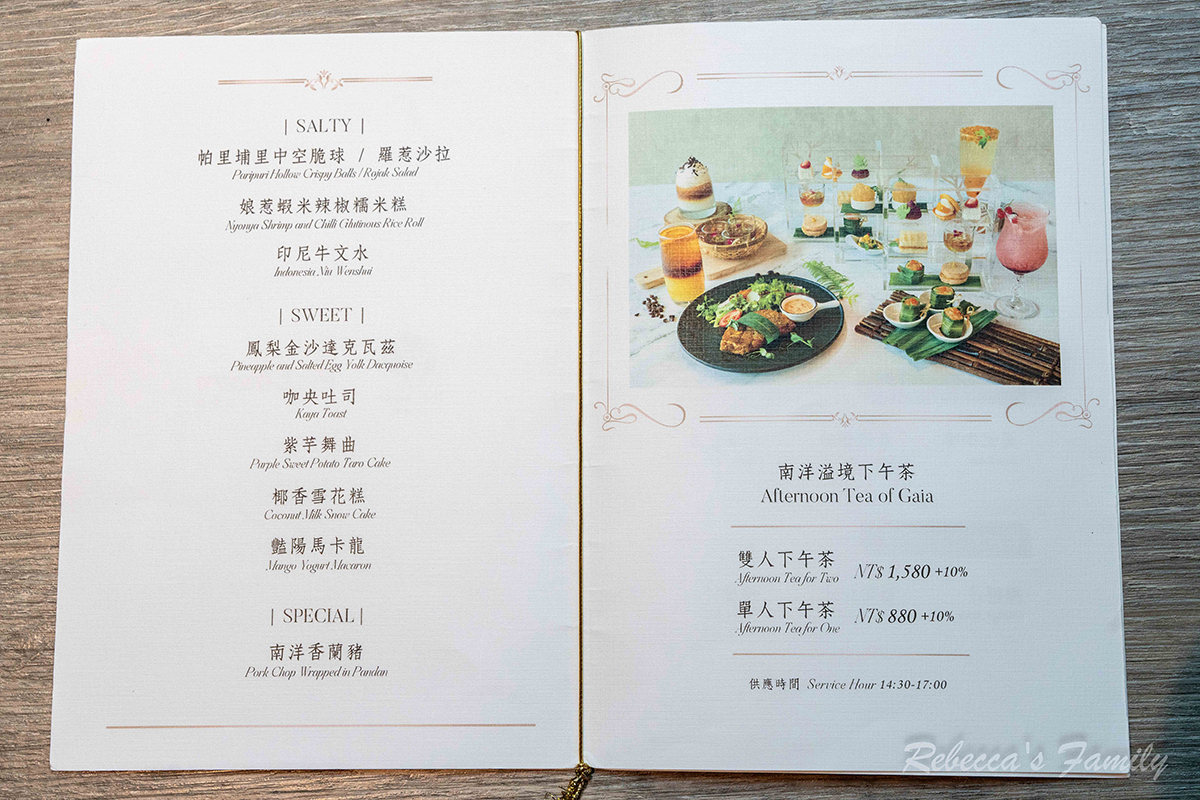 | SALTY |
帕里埔里中空脆球 / 羅惹沙拉
Paripuri Hollow Crispy Balls / Rojak Salad
娘惹蝦米辣椒糯米糕
Nyonya Shrimp and Chilli Glutinous Rice Roll
印尼牛文水
Indonesia Niu Wenshui
| SWEET |
鳳梨金沙達克瓦茲
Pineapple and Salted Egg Yolk Dacquoise
咖央吐司
Kaya Toast
紫芋舞曲
Purple Sweet Potato Taro Cake
椰香雪花糕
Coconut Milk Snow Cake
豔陽馬卡龍
Mango Yogurt Macaron
| SPECIAL |
南洋香蘭豬
Pork Chop Wrapped in Pandan
南洋溢境下午茶
Afternoon Tea of Gaia
雙人下午茶 NT$ 1,580 +10%
Afternoon Tea for Two
單人下午茶 NT$ 880 +10%
Afternoon Tea for One
供應時間 Service Hour 14:30-17:00
Rebecca's Family